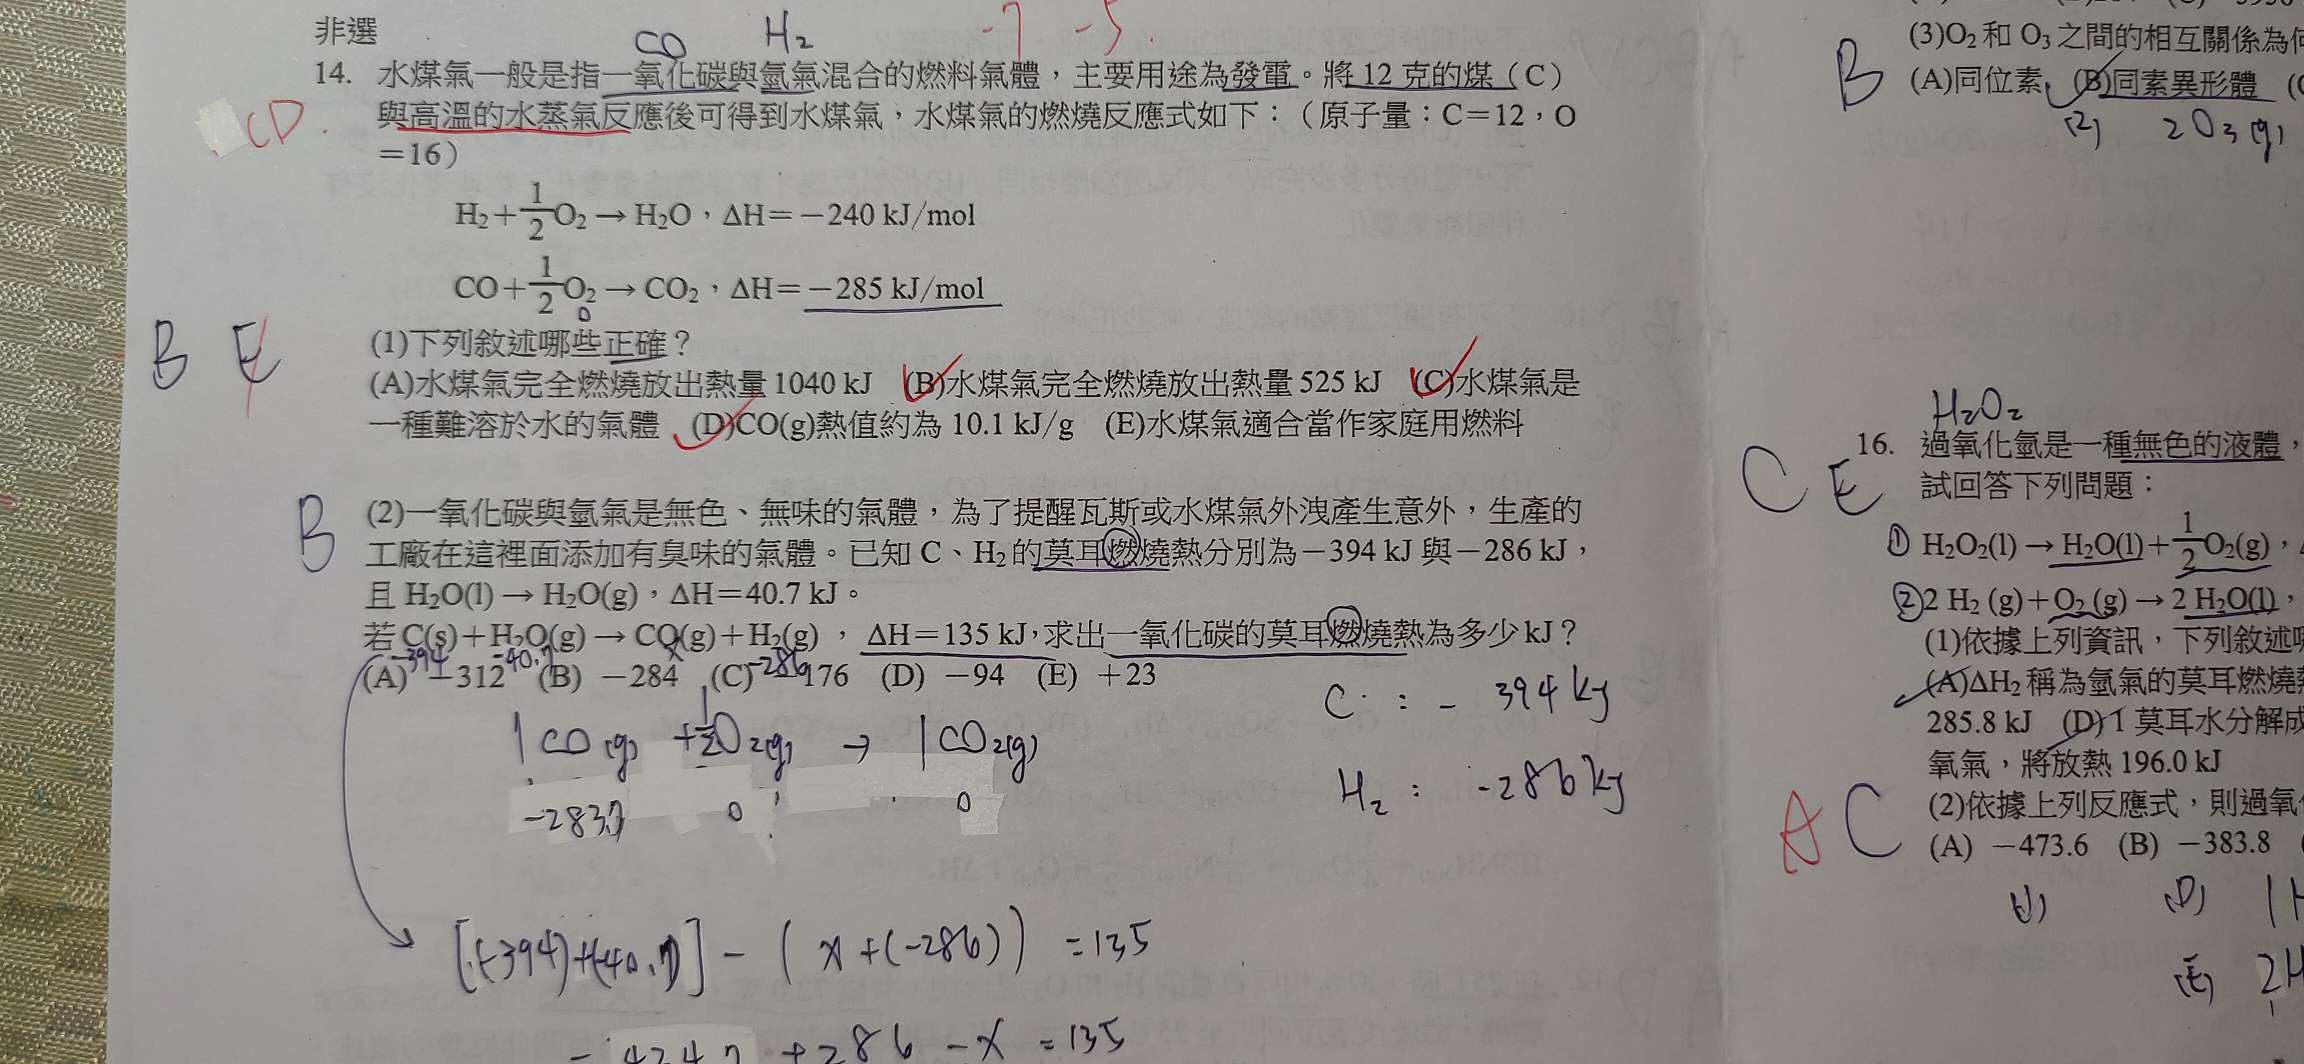 非選
CO H₂ -7 -5.
14. 水煤氣一般是指一氧化碳與氫氣混合的燃料氣體，主要用途為發電。將 12 克的煤（C）
CD.
與高溫的水蒸氣反應後可得到水煤氣，水煤氣的燃燒反應式如下：（原子量：C＝12，O
＝16）
H₂＋1/2O₂ → H₂O，ΔH＝－240 kJ/mol
CO＋1/2O₂ → CO₂，ΔH＝－285 kJ/mol
B E
(1)下列敘述哪些正確？
(A)水煤氣完全燃燒放出熱量 1040 kJ (B)水煤氣完全燃燒放出熱量 525 kJ (C)水煤氣是
一種難溶於水的氣體 (D)CO(g)熱值約為 10.1 kJ/g (E)水煤氣適合當作家庭用燃料
B
(2)一氧化碳與氫氣是無色、無味的氣體，為了提醒瓦斯或水煤氣外洩產生意外，生產的
工廠在這裡面添加有臭味的氣體。已知 C、H₂ 的莫耳燃燒熱分別為－394 kJ 與－286 kJ，
且 H₂O(l) → H₂O(g)，ΔH＝40.7 kJ。
若 C(s)＋H₂O(g) → CO(g)＋H₂(g) ，ΔH＝135 kJ，求出一氧化碳的莫耳燃燒熱為多少 kJ？
-394 -40.7 x -286
(A) －312 (B) －284 (C) －176 (D) －94 (E) ＋23
1CO(g) + 1/2O₂(g) → 1CO₂(g)
-283.7 0 0
C : - 394 kJ
H₂ : -286 kJ
[(-394)+(-40.7)] - (x+(-286)) =135
+286 -x =135
(3)O₂ 和 O₃ 之間的相互關係為何
B
(A)同位素 (B)同素異形體
(2) 2O₃(g)
H₂O₂
C E
16. 過氧化氫是一種無色的液體，
試回答下列問題：
① H₂O₂(l) → H₂O(l)＋1/2O₂(g)，
② 2 H₂ (g)＋O₂ (g) → 2 H₂O(l)，
(1)依據上列資訊，下列敘述哪
(A)ΔH₂ 稱為氫氣的莫耳燃燒熱
285.8 kJ (D) 1 莫耳水分解成
氧氣，將放熱 196.0 kJ
A C
(2)依據上列反應式，則過氧化
(A) －473.6 (B) －383.8
(D) 1H
(E) 2H